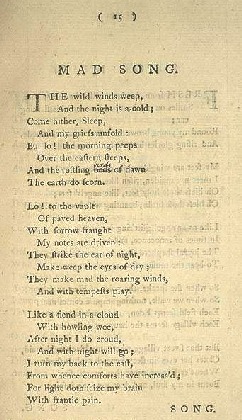 ( 15 )
MAD SONG.
THE wild winds weep,
And the night is a cold;
Come hither, Sleep,
And my griefs unfold:
But lo! the morning peeps
Over the eastern steeps,
And the rustling beds of dawn
The earth do scorn.
Lo! to the vault
Of paved heaven,
With sorrow fraught
My notes are driven:
They strike the ear of night,
Make weep the eyes of day;
They make mad the roaring winds,
And with tempests play.
Like a fiend in a cloud
With howling woe,
After night I do croud,
And with night will go;
I turn my back to the east,
From whence comforts have increas'd;
For light doth seize my brain
With frantic pain.
SONG.